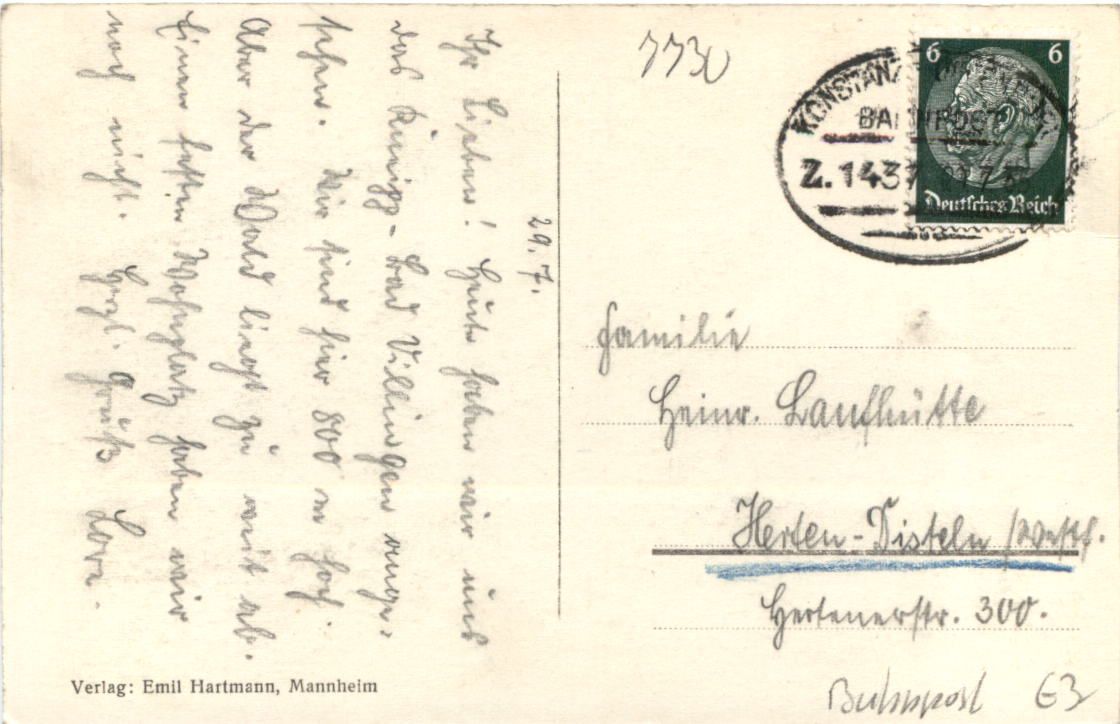 29.7.
Ihr Lieben! Heute haben wir uns
das Kneipp-Bad Villingen ange-
sehen. Wir sind hier 800 m hoch.
Aber der Wald liegt zu weit ab.
Einen festen Wohnplatz haben wir
noch nicht. Herzl. Gruß Lore.
Verlag: Emil Hartmann, Mannheim
7730
KONSTANZ
BAHNPOST
Z. 1437
6 6
Deutsches Reich
Familie
Heinr. Laufhütte
Herten-Disteln /Westf.
Hertenerstr. 300.
Bahnpost 63